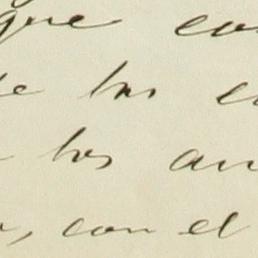 que co
de las c
los an
, con el